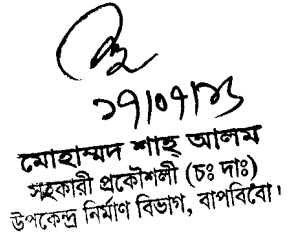 ১৭/০৭/১৬
মোহাম্মদ শাহ্ আলম
সহকারী প্রকৌশলী (চঃ দাঃ)
উপকেন্দ্র নির্মাণ বিভাগ, বাপবিবো।